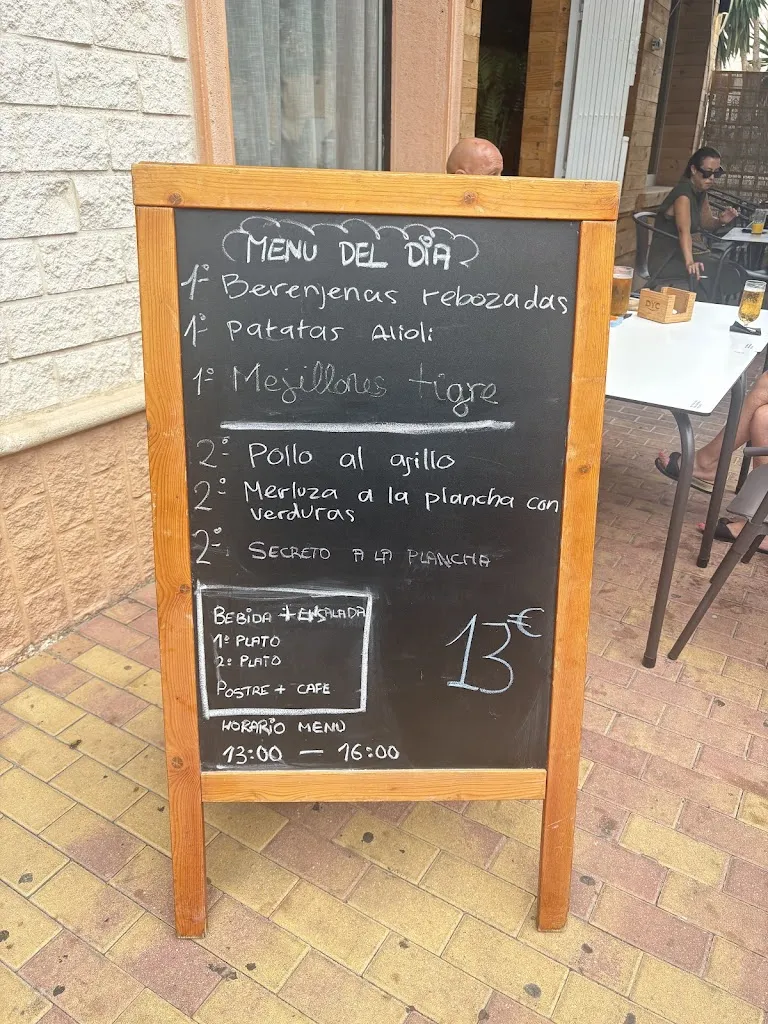 MENU DEL DIA
1º Berenjenas rebozadas
1º Patatas Alioli
1º Mejillones tigre
2º Pollo al ajillo
2º Merluza a la plancha con
verduras
2º SECRETO A LA PLANCHA
BEBIDA + ENSALADA
1º PLATO
2º PLATO
POSTRE + CAFE
13€
HORARIO MENU
13:00 — 16:00